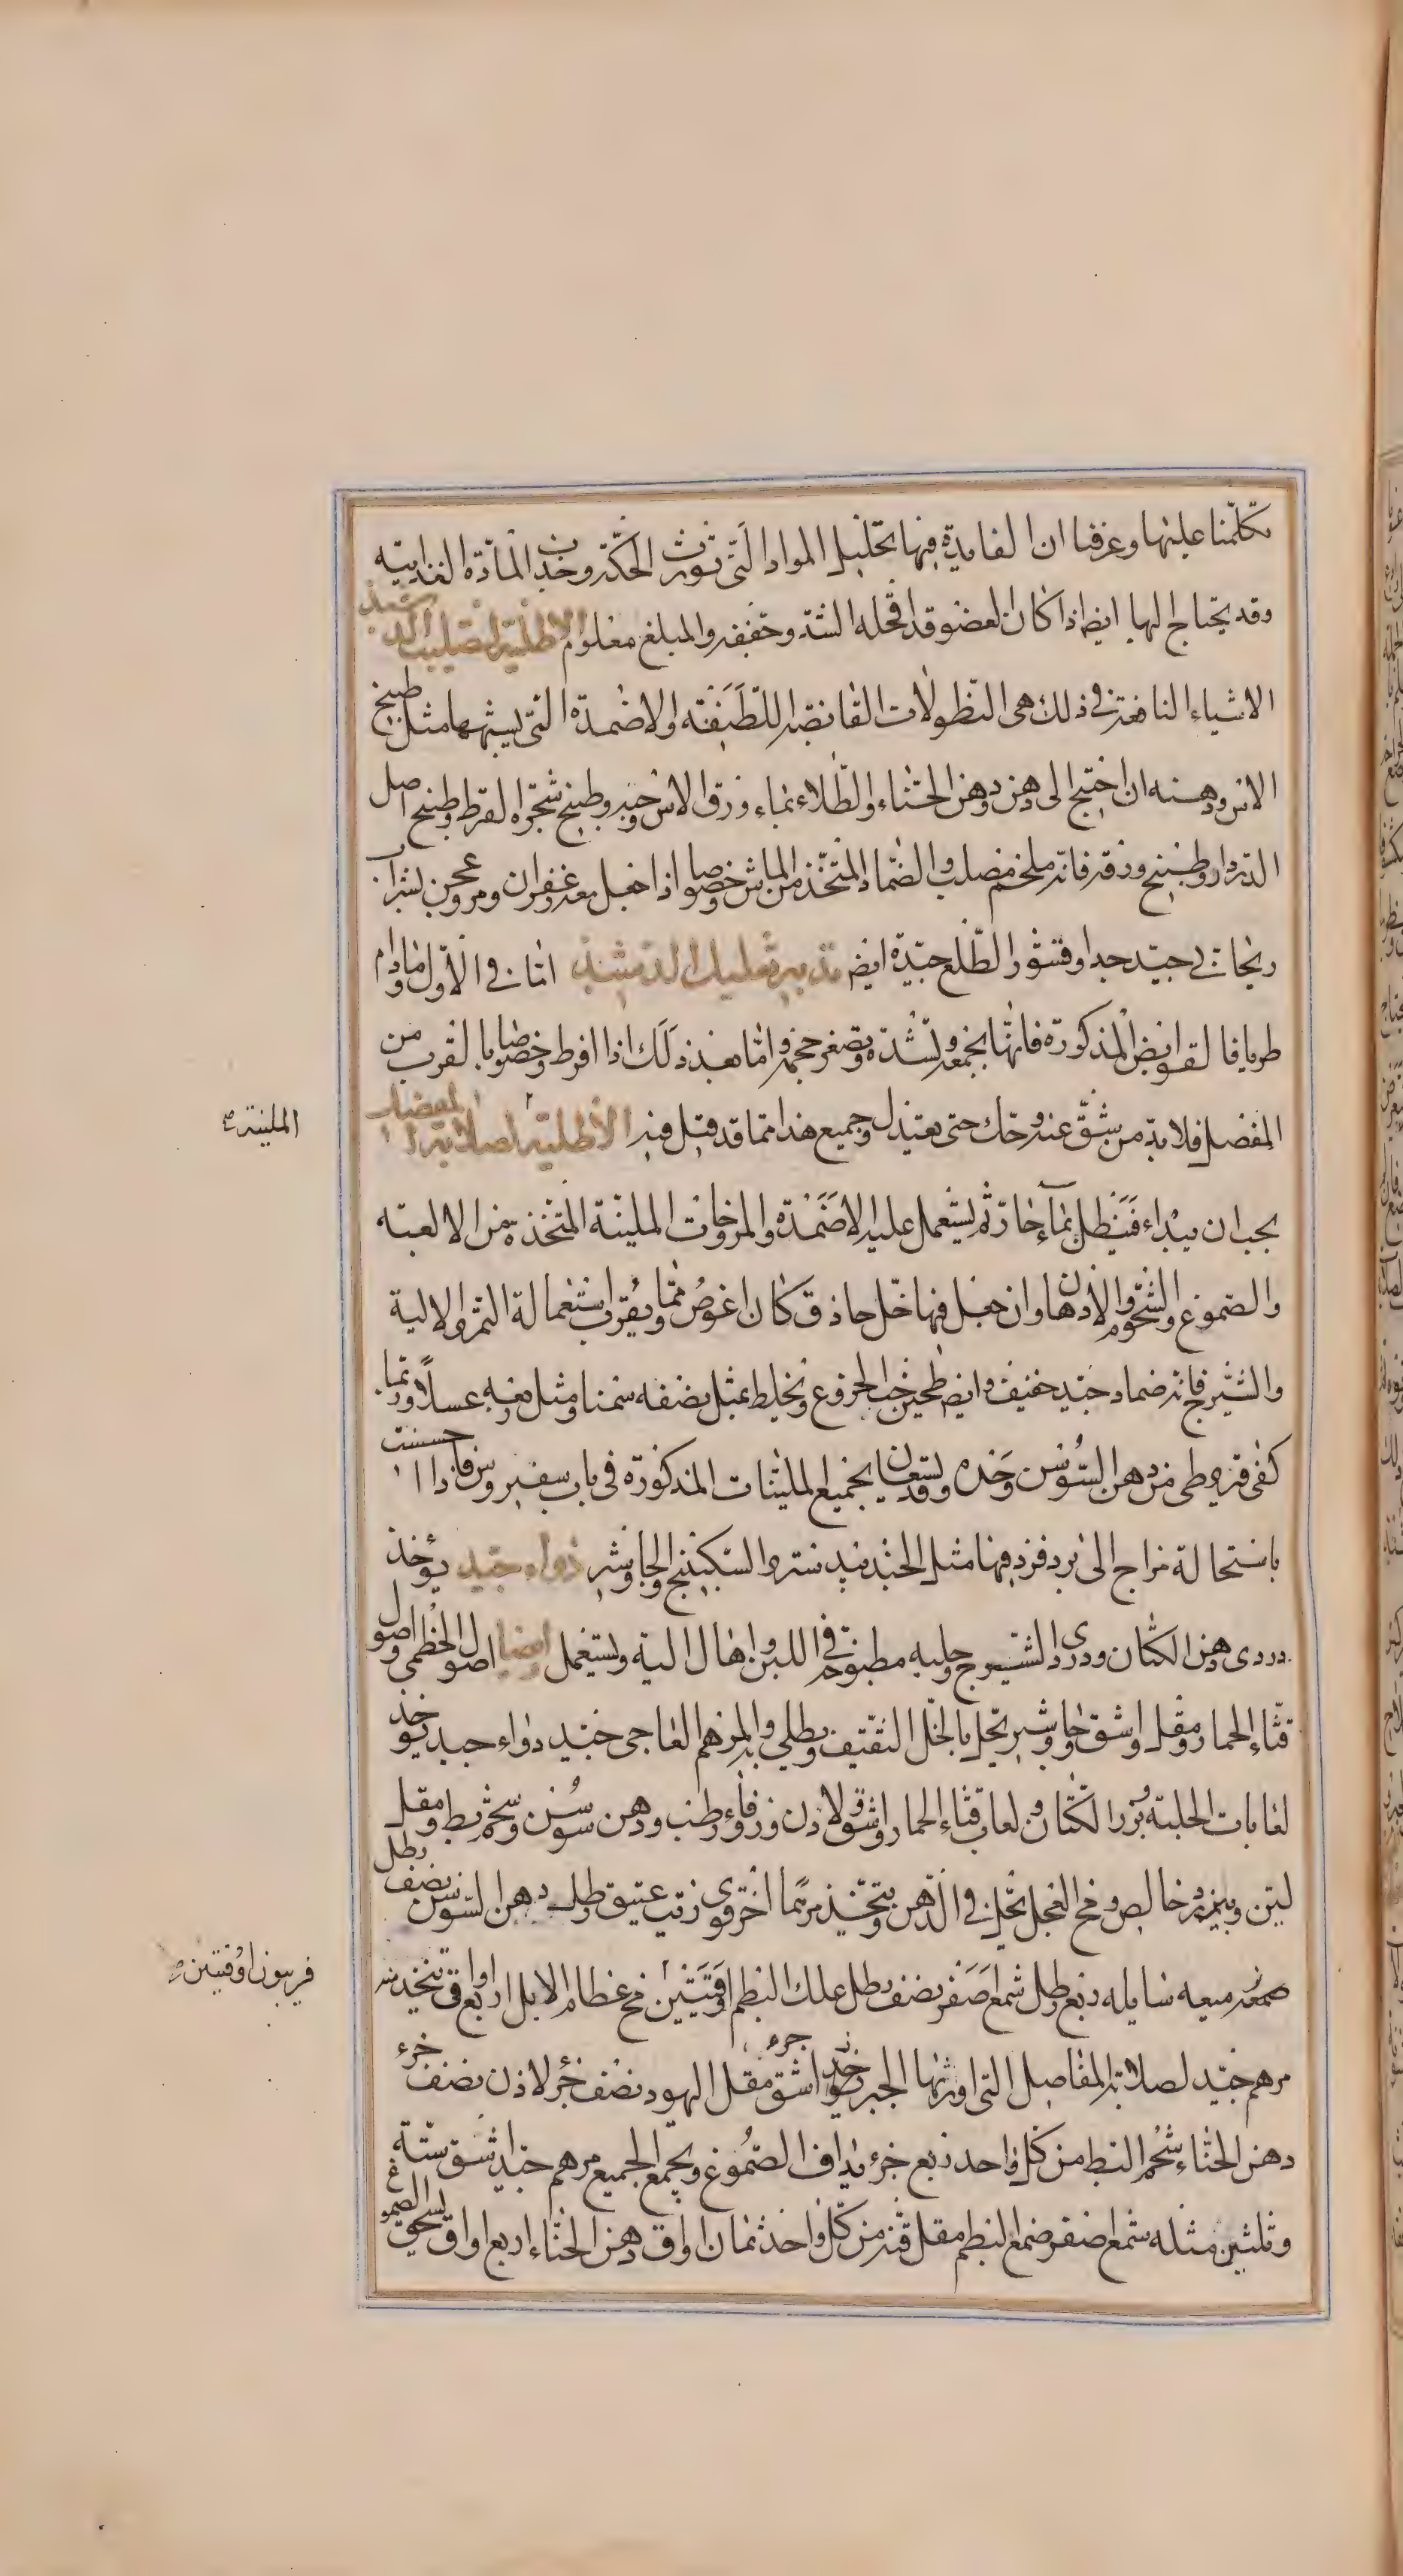 تكلمنا عليها وعرفنا ان الفايدة فيها تحليل المواد التى تورث الحكة وجذب المادة الغذايية
وقد يحتاج اليها ايضا اذا كان العضو قد اقحله الشد وخففه والمبلغ معلوم الاطلية لتصليب الدشبذ
الاشياء النافعة فى ذلك هى النطولات القابضة اللطيفة والاضمدة التى يشبهها مثل طبيخ
الاس ودهنه ان احتيج الى دهن ودهن الحناء والطلاء بماء ورق الاس وحبه وطبيخ شجرة القرط وطبيخ اصل
الدردار وطبيخ ورقه فانه ملحم مصلب والضماد المتخذ من الماش خصوصا اذا جعل معه زعفران ومر وعجن بشراب
ريحانى جيد جدا وقشور الطلع جيدة ايضا تدبير تعليل الدشبذ اما فى الاول وما دام
طريا فالقوابض المذكورة فانها تجمعه وتشده وتصغر حجمه واما بعد ذلك اذا افرط وخصوصا بالقرب من
المفصل فلا بد من شق عنه وحك حتى يعتدل وجميع هذا مما قد قيل فيه الاطلية لصلابة المفصل
يجب ان يبداء فينطل بماء حار ثم يستعمل عليه الاضمدة والمروخات الملينة المتخذة من الالعبة
والصموغ والشحوم والادهان وان جعل فيها خل حاذق كان اغوص ومما يقرب استعماله التمر والالية
والشيرج فانه ضماد جيد خفيف وايضا طحين حب الخروع ويخلط بمثل نصفه سمنا ومثل ربعه عسلا وربما
كفى قيروطى من دهن السوسن وحده وقد يستعان بجميع الملينات المذكورة فى باب سقيروس فاذا احسست
باستحالة مزاج الى برد فزد فيها مثل الجندبيدستر والسكبينج والجاوشير دواء جيد يؤخذ
دردى دهن الكتان ودردى الشيرج وحلبه مطبوخة فى اللبن واهال الية ويستعمل ايضا اصول الخطمى واصول
قثاء الحمار ومقل واشق وجاوشير تحل بالخل الثقيف ويطلى والمرهم العاجى جيد دواء جيد يؤخذ
لعابات الحلبة وبزر الكتان ولعاب قثاء الحمار واشق ولادن وزوفاء رطب ودهن سوسن وشحم بط ومقل
لين وبيرزد خالص ومخ العجل تحل فى الدهن ويتخذ مرهما اخر قوى زيت عتيق رطل دهن السوسن نصف رطل
صمغه ميعه سايله ربع رطل شمع اصفر نصف رطل علك البطم اوقيتين مخ عظام الابل اربع اواقى يتخذ منه
مرهم جيد لصلابة المفاصل التى اورثها الجبر يؤخذ اشق جزء مقل اليهود نصف جزء لاذن نصف جزء
دهن الحناء شحم البط من كل واحد ربع جزء يداف الصموغ ويجمع الجميع مرهم جيد اشق ستة
وثلثين مثله شمع اصفر صمغ البطم مقل قنه من كل واحد ثمان اواق دهن الحناء اربع اواق يسحق الصموغ
الملينة
فربيون اوقيتين